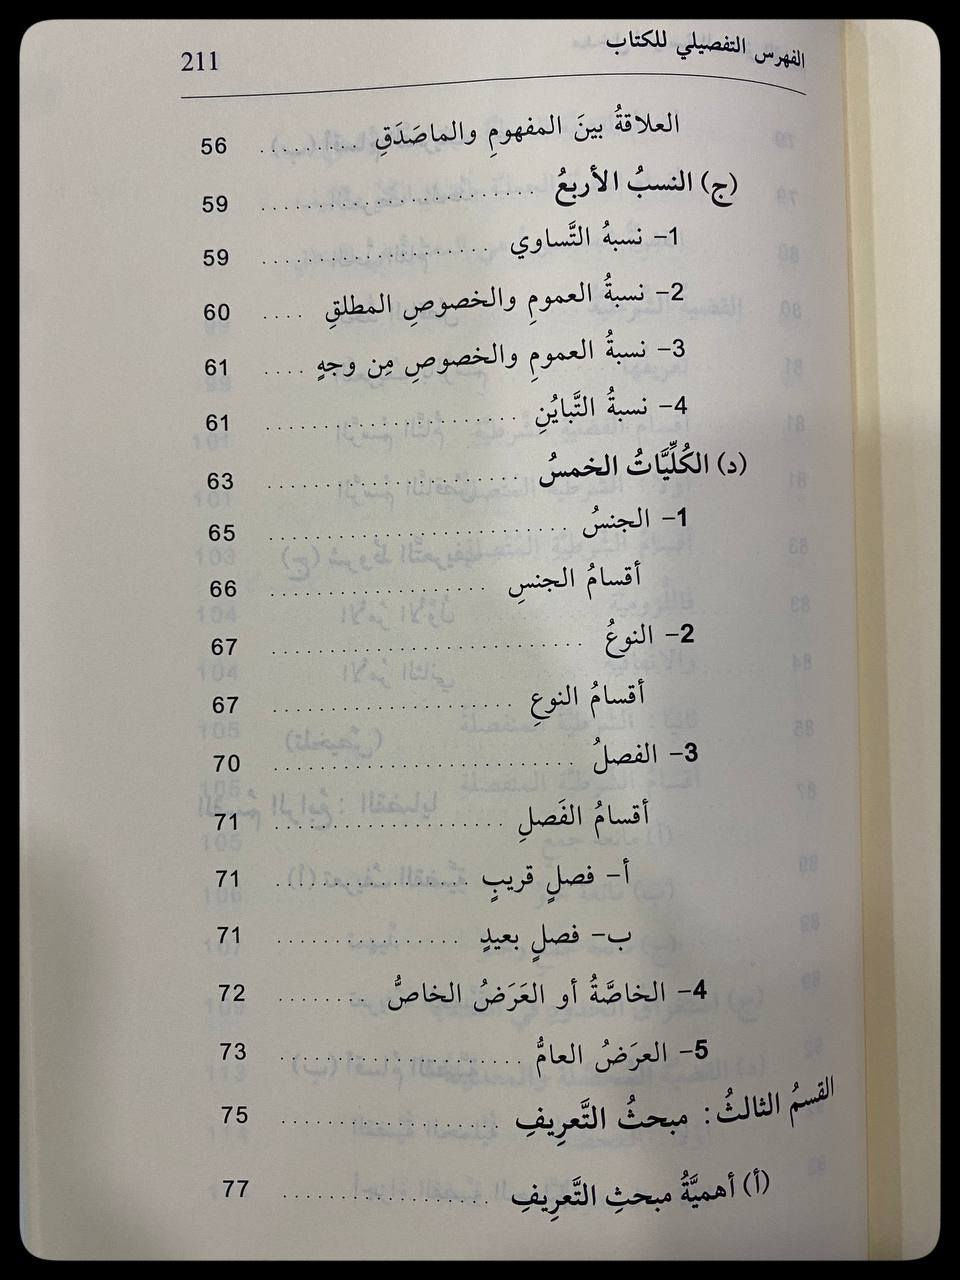 الفهرس التفصيلي للكتاب 211
العلاقةُ بينَ المفهومِ والماصَدَقِ ......... 56
(ج) النسبُ الأربعُ ......................... 59
1- نسبةُ التَّساوي ..................... 59
2- نسبةُ العمومِ والخصوصِ المطلقِ .... 60
3- نسبةُ العمومِ والخصوصِ مِن وجهٍ .... 61
4- نسبةُ التَّبايُنِ ....................... 61
(د) الكُلِّيَّاتُ الخمسُ ........................ 63
1- الجنسُ ............................ 65
أقسامُ الجنسِ ....................... 66
2- النوعُ ............................. 67
أقسامُ النوعِ ........................ 67
3- الفصلُ ............................ 70
أقسامُ الفَصلِ ....................... 71
أ- فصلٍ قريبٍ ................... 71
ب- فصلٍ بعيدٍ .................. 71
4- الخاصَّةُ أو العَرَضُ الخاصُّ ........ 72
5- العرَضُ العامُّ ...................... 73
القسمُ الثالثُ: مبحثُ التَّعرِيفِ ...................... 75
(أ) أهميَّةُ مبحثِ التَّعرِيفِ ..................... 77